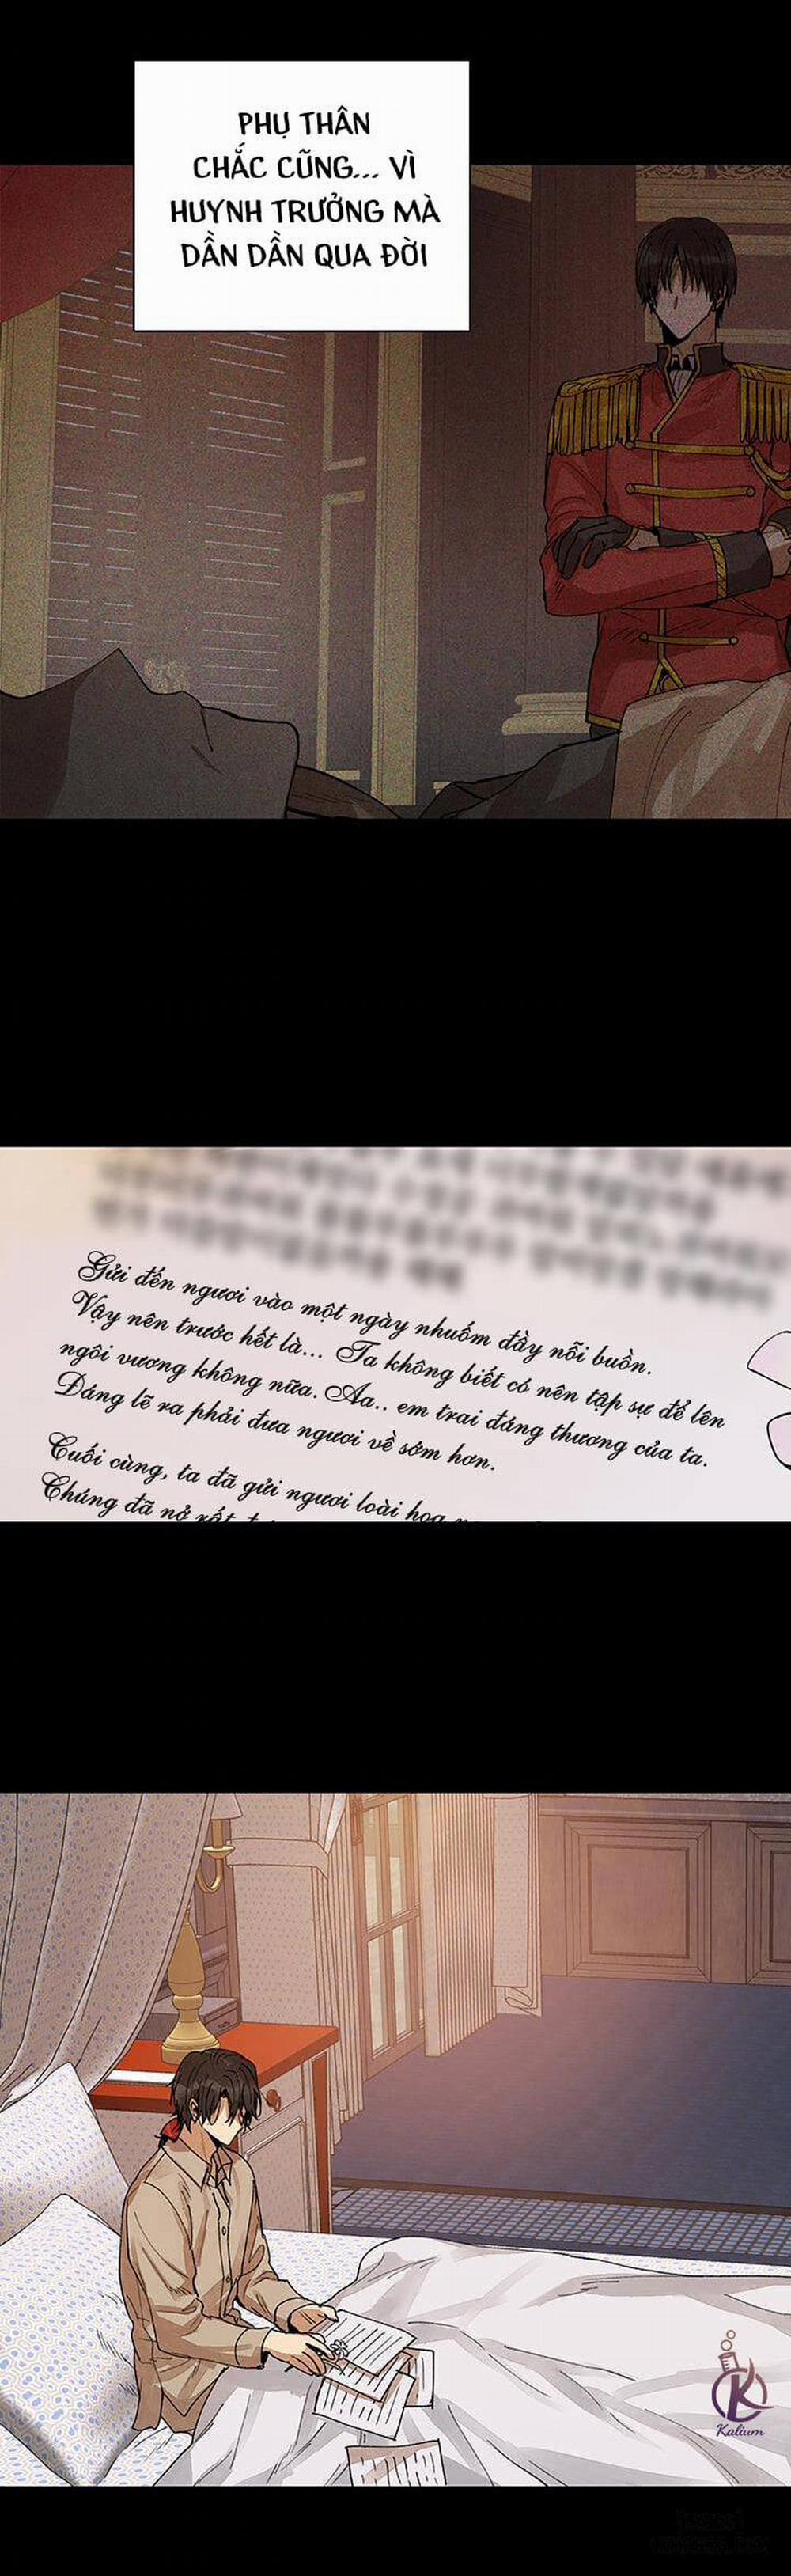 PHỤ THÂN
CHẮC CŨNG... VÌ
HUYNH TRƯỞNG MÀ
DẦN DẦN QUA ĐỜI
Gửi đến ngươi vào một ngày nhuốm đầy nỗi buồn.
Vậy nên trước hết là... Ta không biết có nên tập sự để lên
ngôi vương không nữa. Aa.. em trai đáng thương của ta.
Đáng lẽ ra phải đưa ngươi về sớm hơn.
Cuối cùng, ta đã gửi ngươi loài hoa
Chúng đã nở rất
Kalium